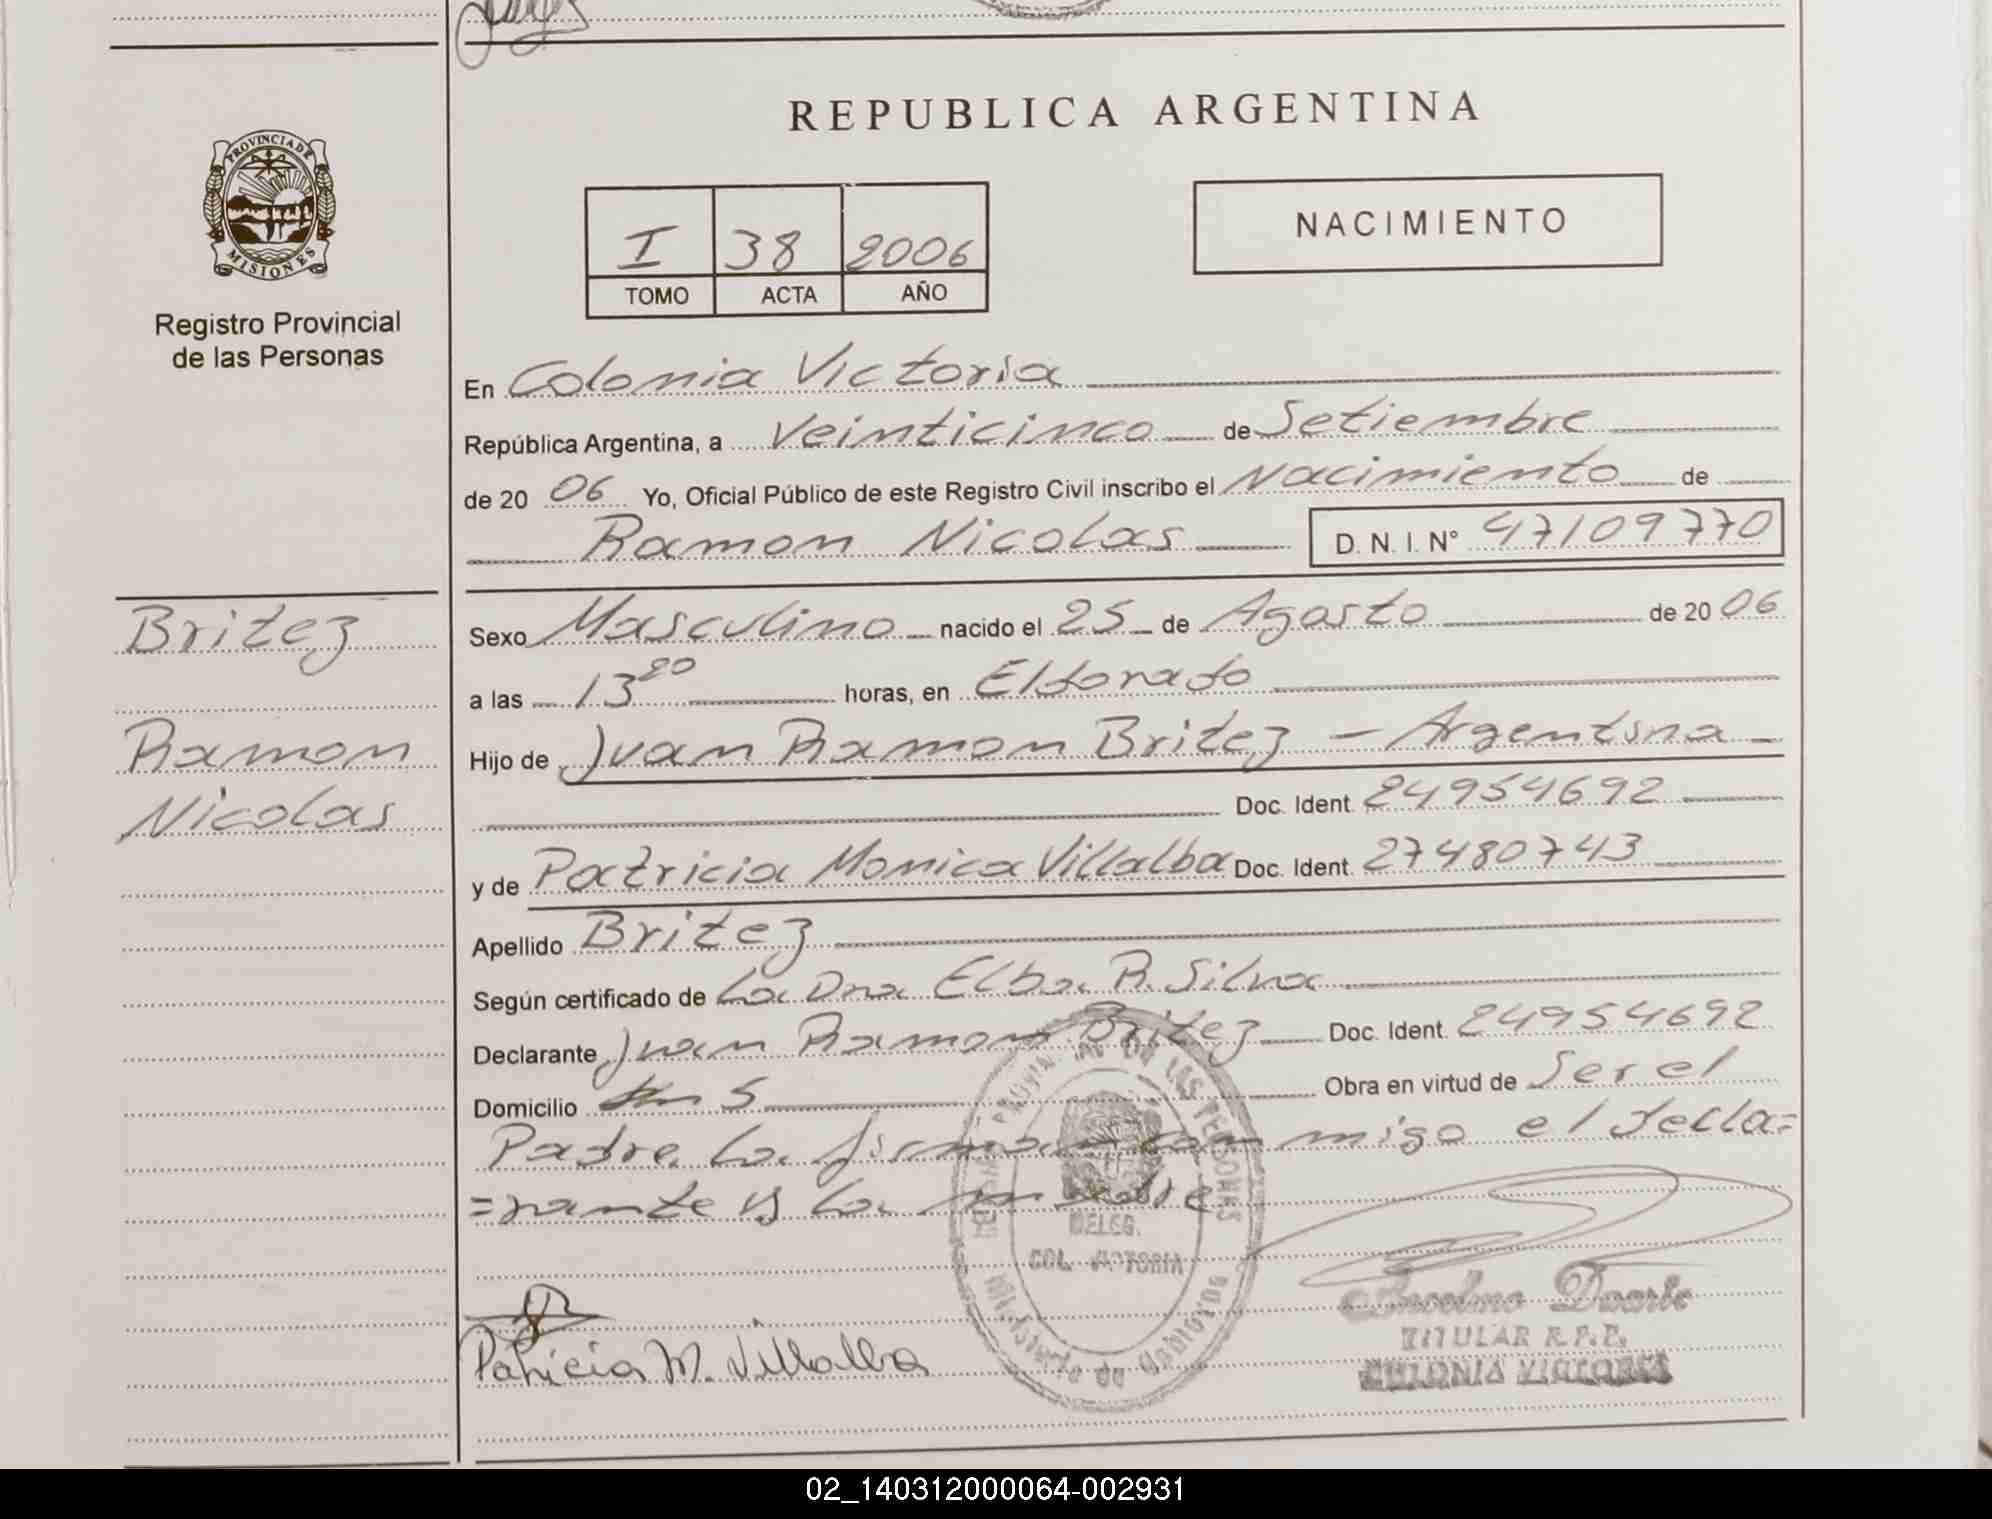 REPUBLICA ARGENTINA
PROVINCIA DE
MISIONES
Registro Provincial
de las Personas
I 38 2006
TOMO ACTA AÑO
NACIMIENTO
En Colonia Victoria
República Argentina, a Veinticinco de Setiembre
de 20 06 Yo, Oficial Público de este Registro Civil inscribo el Nacimiento de
Ramon Nicolas D. N. I. N° 47109770
Britez
Ramon
Nicolas
Sexo Masculino nacido el 25 de Agosto de 20 06
a las 13 20 horas, en Eldorado
Hijo de Juan Ramon Britez - Argentina
Doc. Ident. 24954692
y de Patricia Monica Villalba Doc. Ident. 27480743
Apellido Britez
Según certificado de La Dra Elba R. Silva
Declarante Juan Ramon Britez Doc. Ident. 24954692
Domicilio Obra en virtud de Ser el
Padre. La firman conmigo el decla=
=rante y la madre
DELEG.
COL. VICTORIA
Ministerio de Gobierno
Patricia M. Villalba
Anselmo Duarte
TITULAR R.P.P.
COLONIA VICTORIA
02_140312000064-002931